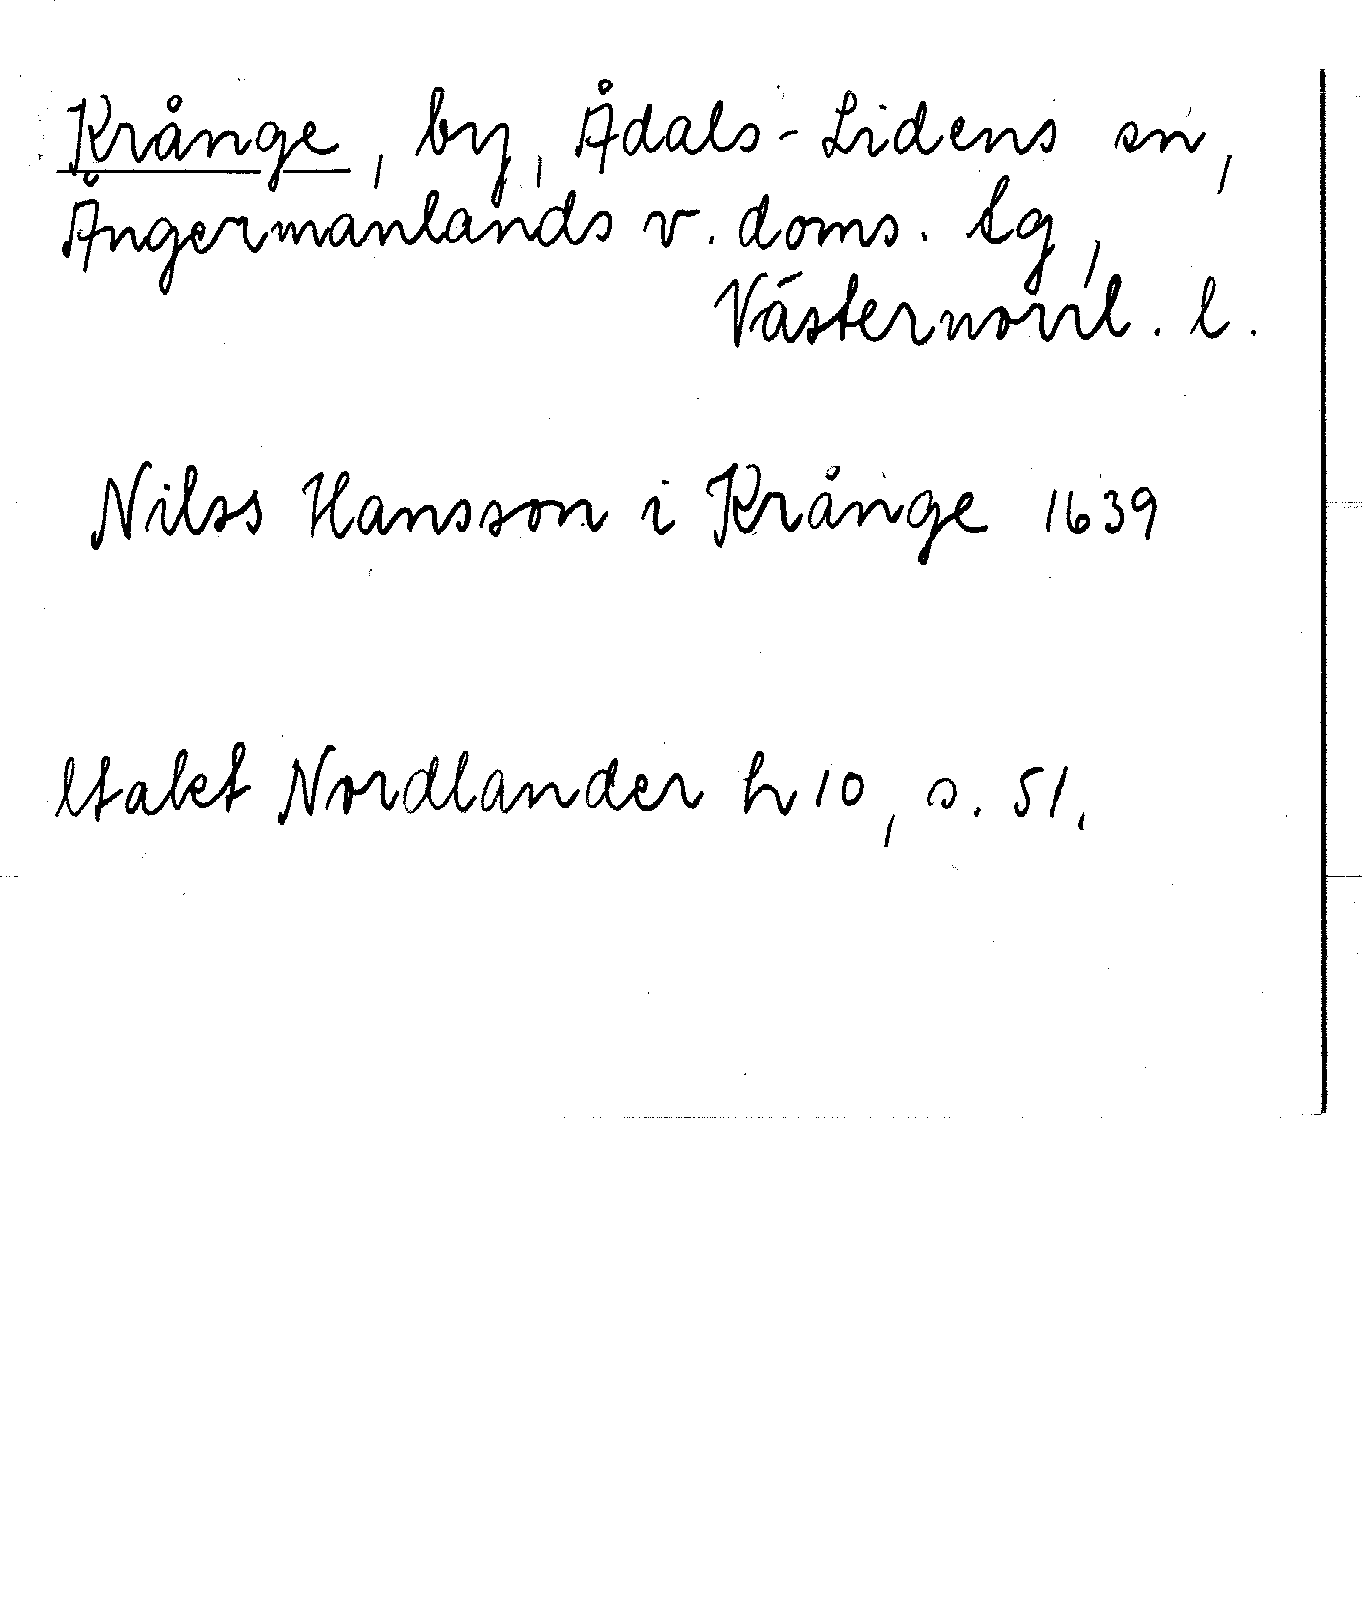 Krånge, by, Ådals-Lidens sn,
Ångermanlands v. doms. tg,
Västernorrl. l.
Nilss Hansson i Krånge 1639
Utakt Nordlander h 10, s. 51.